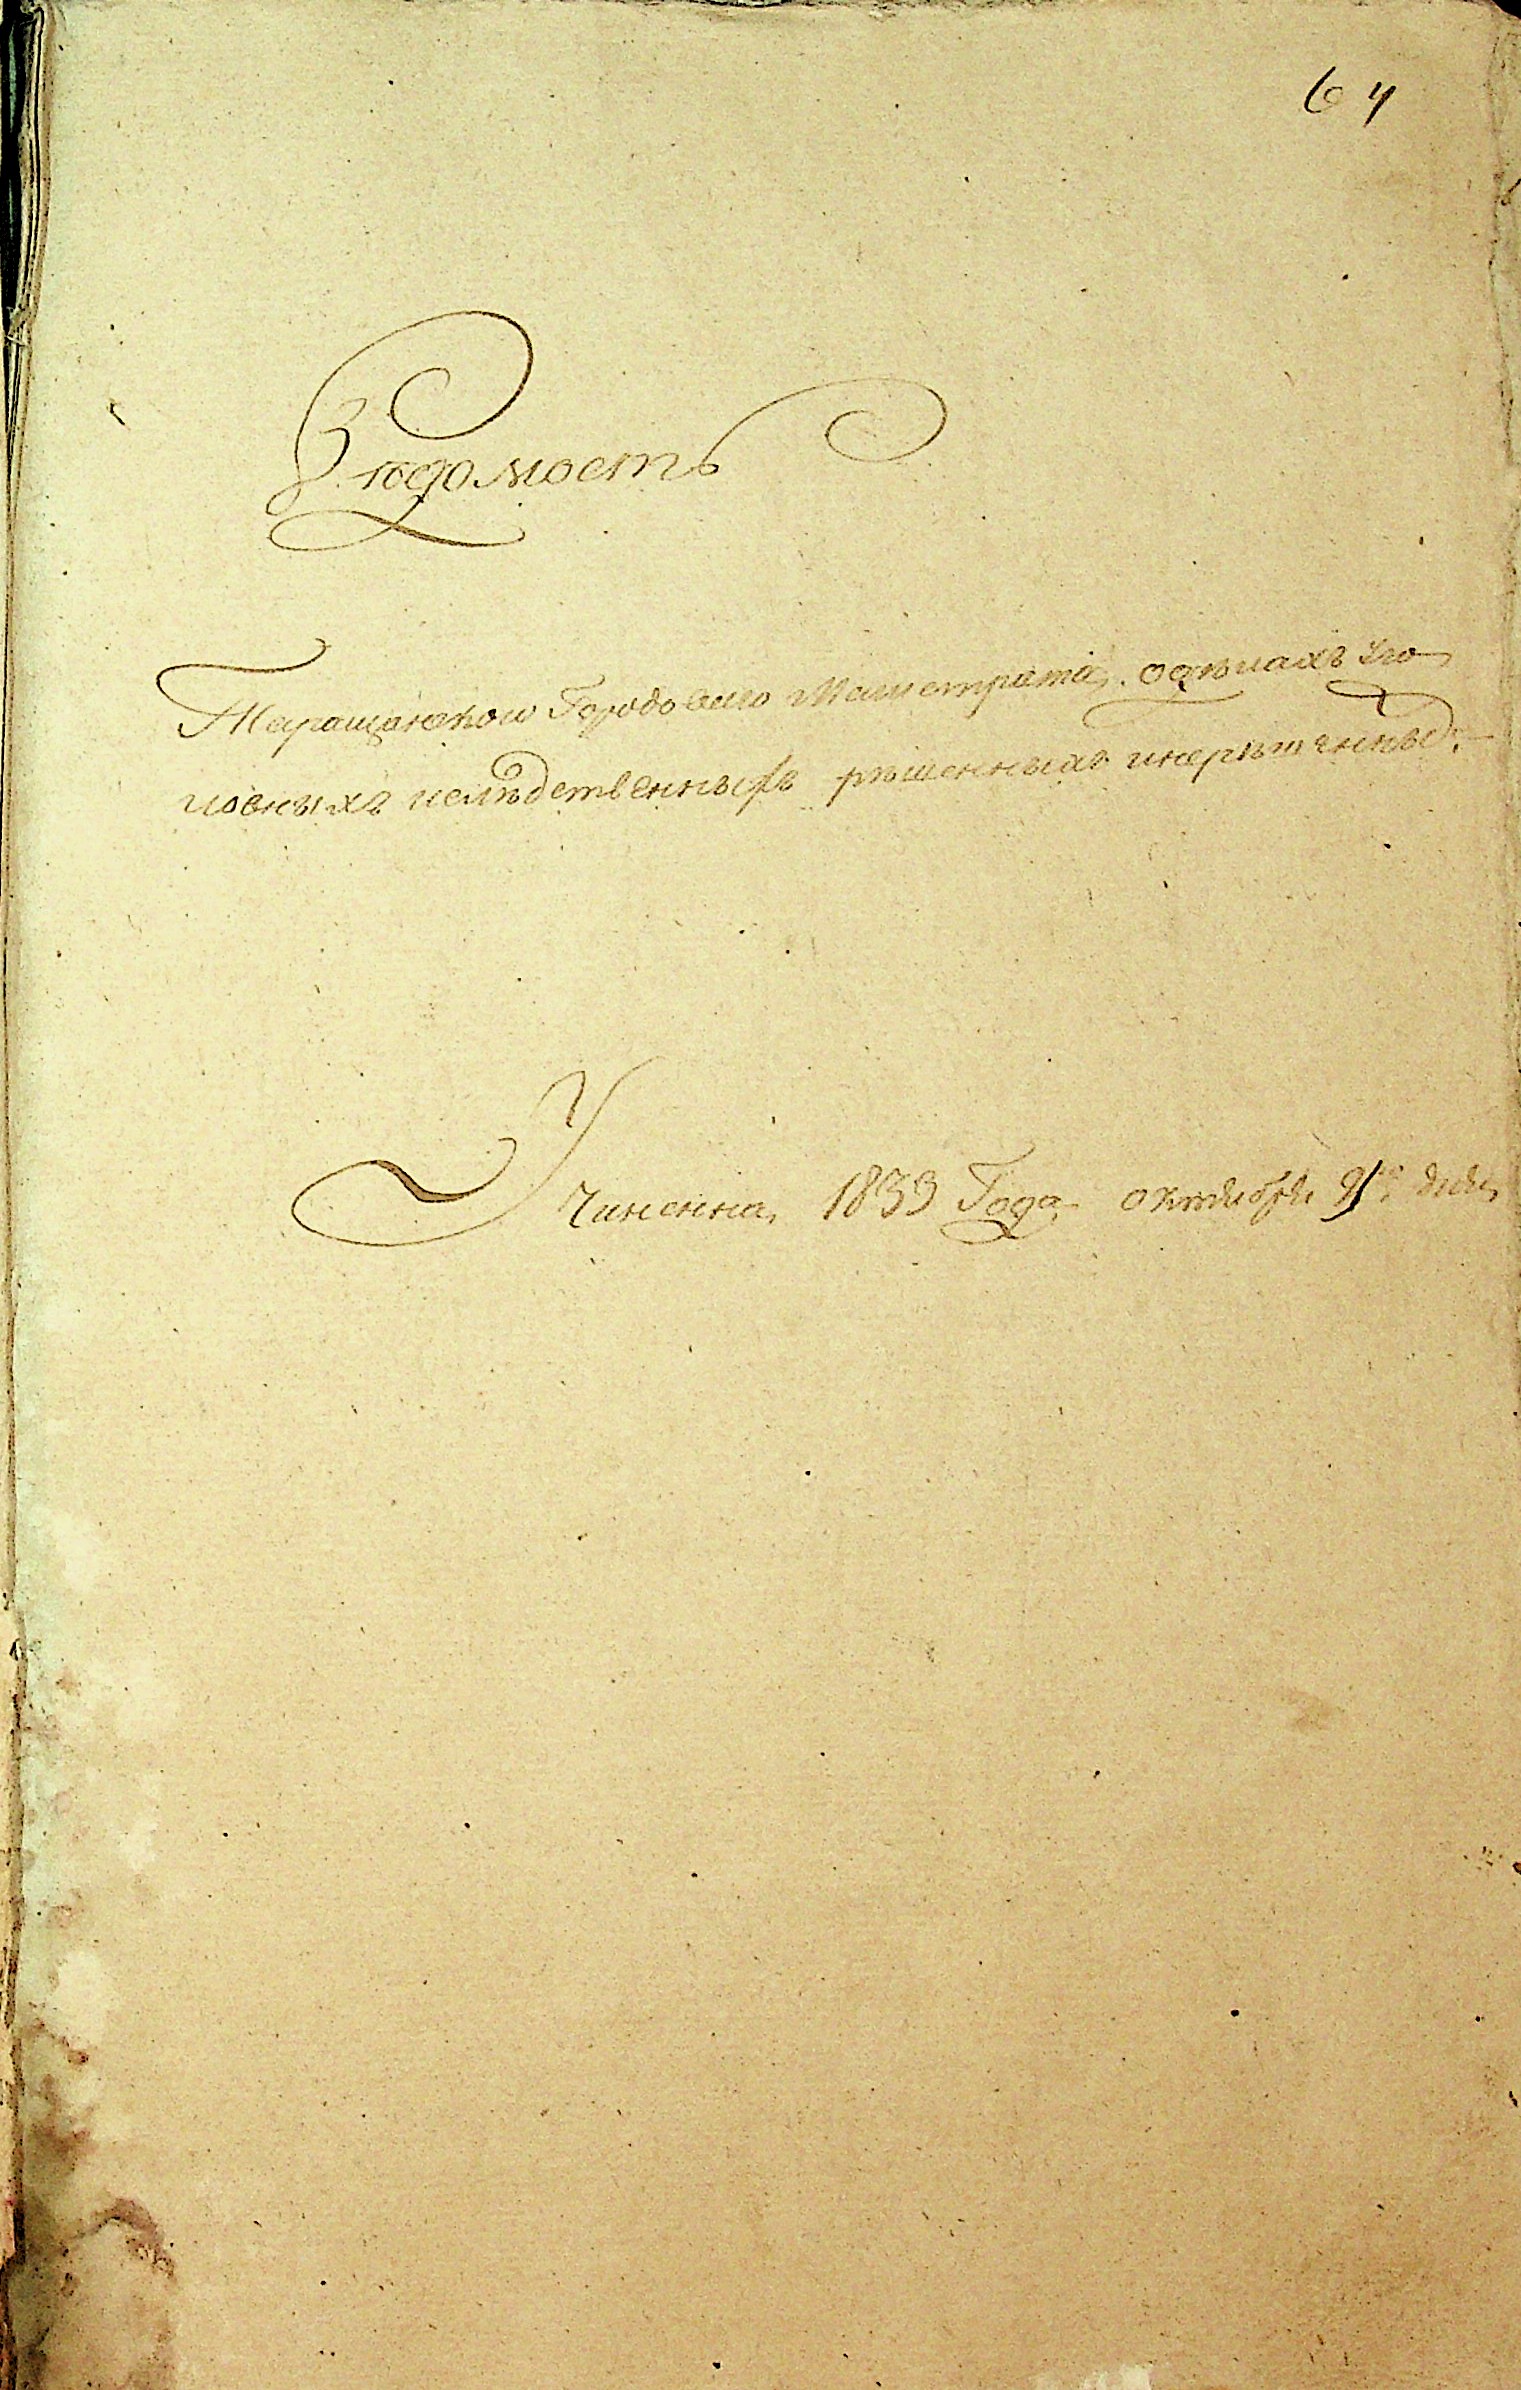 64
Вѣдомость
Таращанского Городоваго Магистрата, одѣлахъ Уго
ловныхъ ислѣдственныхъ рѣшенныхъ инерѣшенныхъ:
Учиненна, 1833 Года октября 9го дня